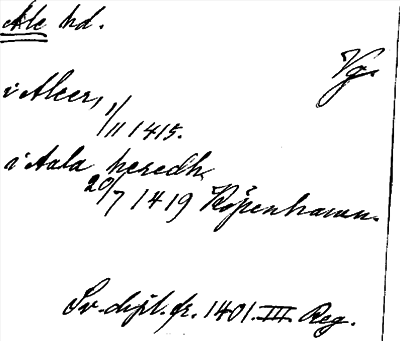 Ale hd.
Vg.
i Aleer,
1/11 1415.
i Aala heredh
20/7 1419 Köpenhamn.
Sv. dipl. fr. 1401. III. Reg.